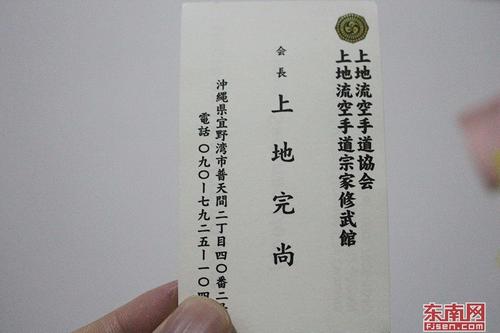 上地流空手道協会
上地流空手道宗家修武館
会長 上地完尚
沖縄県宜野湾市普天間二丁目四〇番二号
電話 〇九〇ー七九二五ー一〇四
东南网
FJSEN.COM